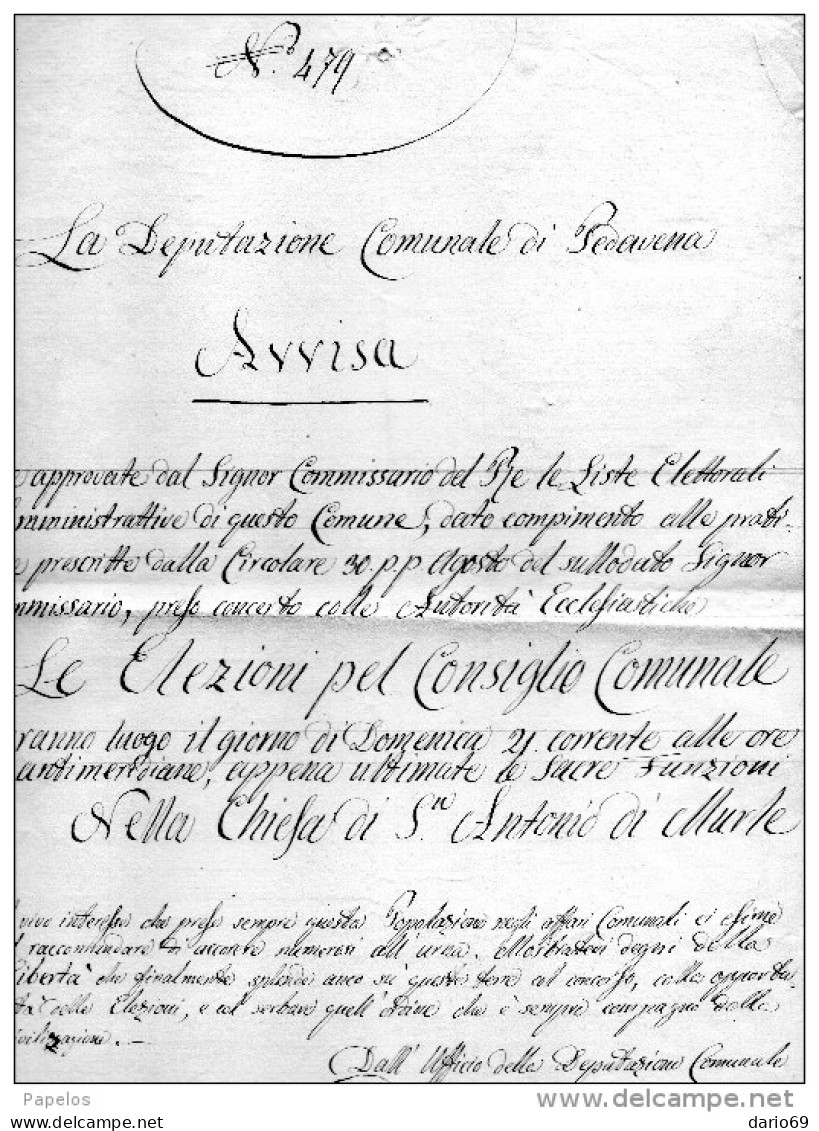 N.º 479
La Deputazione Comunale di Pedavena
Avvisa
approvate dal Signor Commissario del Re le Liste Elettorali
mministrattive di questo Comune, dato compimento alle prati-
e prescritte dalla Circolare 30. p.p. Agosto del sullodato Signor
mmissario, preso concerto colle Autorità Ecclesiastiche
Le Elezioni pel Consiglio Comunale
ranno luogo il giorno di Domenica 21. corrente alle ore
antimeridiane, appena ultimate le Sacre Funzioni
Nella Chiesa di S.n Antonio di Murle
vivo interesse che prese sempre questa Popolazione negli affari Comunali ci esime
l raccomandare di accorere numerosi all'urna. Mostratevi degni della
libertà che finalmente splende anco su queste terre col concorso, colla opportu
tà delle Elezioni, e col serbare quell'ordine che è sempre compagno della
ivilizzazione. -
Dall'Ufficio della Deputazione Comunale
Papelos
delcampe.net
dario69